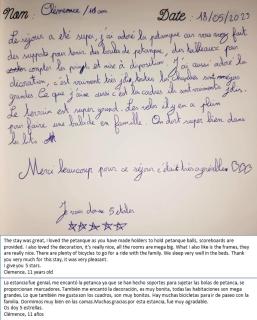 Nom : Clémence / 11 ans Date : 18/05/2023
Le séjour a été super, j'ai adoré la petanque car vous avez fait
des supports pour tenir des boules de petanque, des tableaux pour
compter les points et mis à disposition. J'ai aussi adoré la
décoration, c'est vraiment très jolie, toutes les chambres sont méga
grandes. Ce que j'aime aussi c'est la cadres ils sont vraiment jolies.
Le terrain est super grand. Les vélos il y en a plein
pour faire une balade en famille. On dort super bien dans
le lits
Merci beaucoup pour ce séjour c'était très agréable ♡♡♡
Je vous donne 5 étoiles
☆☆☆☆☆
The stay was great, I loved the petanque as you have made holders to hold petanque balls, scoreboards are
provided. I also loved the decoration, it's really nice, all the rooms are mega big. What I also like is the frames, they
are really nice. There are plenty of bicycles to go for a ride with the family. We sleep very well in the beds. Thank
you very much for this stay, it was very pleasant.
I give you 5 stars.
Clemence, 11 years old
La estancia fue genial, me encantó la petanca ya que se han hecho soportes para sujetar las bolas de petanca, se
proporcionan marcadores. También me encantó la decoración, es muy bonita, todas las habitaciones son mega
grandes. Lo que también me gusta son los cuadros, son muy bonitos. Hay muchas bicicletas para ir de paseo con la
familia. Dormimos muy bien en las camas. Muchas gracias por esta estancia, fue muy agradable.
Os doy 5 estrellas.
Clémence, 11 años